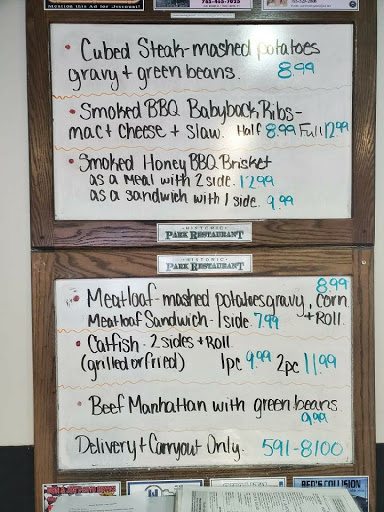 Mention this Ad for Discount!
765-455-7025
• Cubed Steak-mashed potatoes
gravy + green beans. 8.99
• Smoked BBQ Babyback Ribs-
mac + cheese + slaw. Half 8.99 Full 12.99
• Smoked Honey BBQ Brisket
as a meal with 2 side. 12.99
as a sandwich with 1 side. 9.99
HISTORIC
PARK RESTAURANT
HISTORIC
PARK RESTAURANT
8.99
• Meatloaf-mashed potatoes gravy, corn
Meatloaf Sandwich-1 side 7.99 + Roll
• Catfish - 2 sides + Roll
(grilled or fried) 1pc 9.99 2pc 11.99
• Beef Manhattan with green beans
9.99
Delivery + Carryout Only. 591-8100
COLLISION